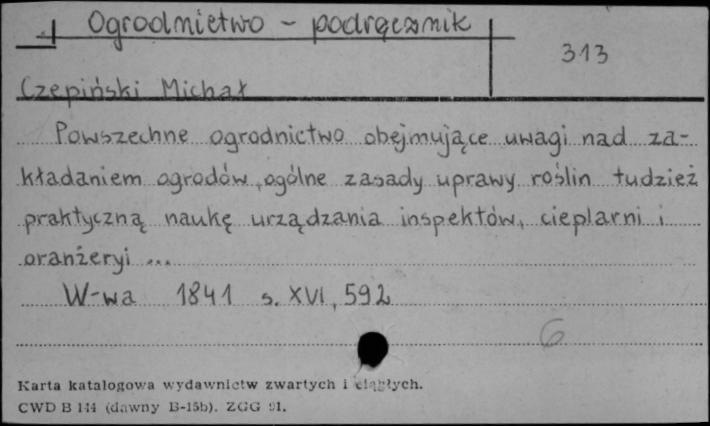 Ogrodnictwo - podręcznik
313
Czepiński Michał
Powszechne ogrodnictwo obejmujące uwagi nad za-
kładaniem ogrodów, ogólne zasady uprawy roślin tudzież
praktyczną naukę urządzania inspektów, cieplarni i
oranżeryi ...
W-wa 1841 s. XVI, 592
6
Karta katalogowa wydawnictw zwartych i ciągłych.
CWD B 144 (dawny B-15b). ZGG 91.